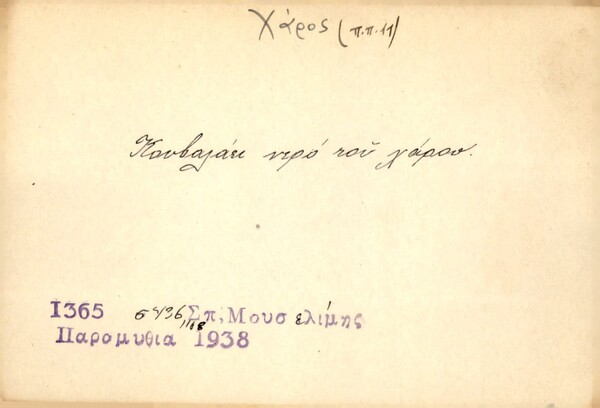 Χάρος (π.π. 11)
Κουβαλάει νερό τοῦ χάρου.
1365 σ 436 Σπ. Μουσελίμης
Παραμυθια 1938